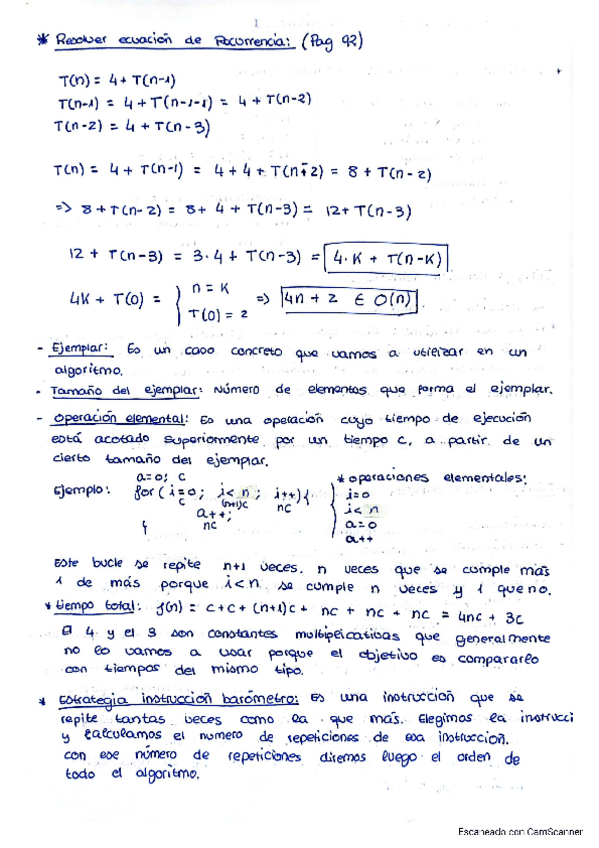 1
* Resolver ecuación de Recurrencia: (Pag 92)
T(n) = 4 + T(n-1)
T(n-1) = 4 + T(n-1-1) = 4 + T(n-2)
T(n-2) = 4 + T(n-3)
T(n) = 4 + T(n-1) = 4 + 4 + T(n-2) = 8 + T(n-2)
=> 8 + T(n-2) = 8 + 4 + T(n-3) = 12 + T(n-3)
12 + T(n-3) = 3·4 + T(n-3) = 4·K + T(n-K)
4K + T(0) = { n = K T(0) = 2 => 4n + 2 ∈ O(n)
- Ejemplar: Es un caso concreto que vamos a utilizar en un
algoritmo.
- Tamaño del ejemplar: Número de elementos que forma el ejemplar.
- Operación elemental: Es una operación cuyo tiempo de ejecución
está acotado superiormente por un tiempo c, a partir de un
cierto tamaño del ejemplar.
a=0; c * operaciones elementales:
Ejemplo: for (i=0; i<n; i++) { i=0
c (n+1)c nc i<n
a++; a=0
} nc a++
Este bucle se repite n+1 veces. n veces que se cumple más
1 de más porque i<n se cumple n veces y 1 que no.
* tiempo total: f(n) = c + c + (n+1)c + nc + nc + nc = 4nc + 3c
El 4 y el 3 son constantes multiplicativas que generalmente
no lo vamos a usar porque el objetivo es compararlo
con tiempos del mismo tipo.
* Estrategia instrucción barómetro: Es una instrucción que se
repite tantas veces como la que más. Elegimos la instrucci
y calculamos el numero de repeticiones de esa instruccion.
con ese número de repeticiones diremos luego el orden de
todo el algoritmo.
Escaneado con CamScanner